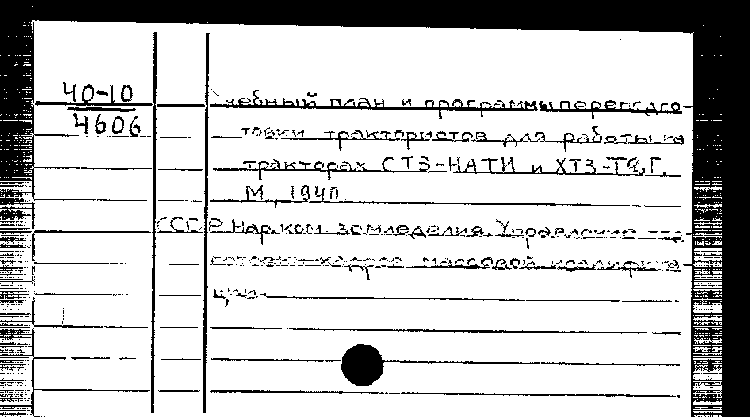 40-10
4606
Учебный план и программы переподго-
товки трактористов для работы на
тракторах СТЗ-НАТИ и ХТЗ-Т2Г.
М., 1940.
СССР. Нар. ком. земледелия. Управление под-
готовки кадров массовой квалифика-
ции.